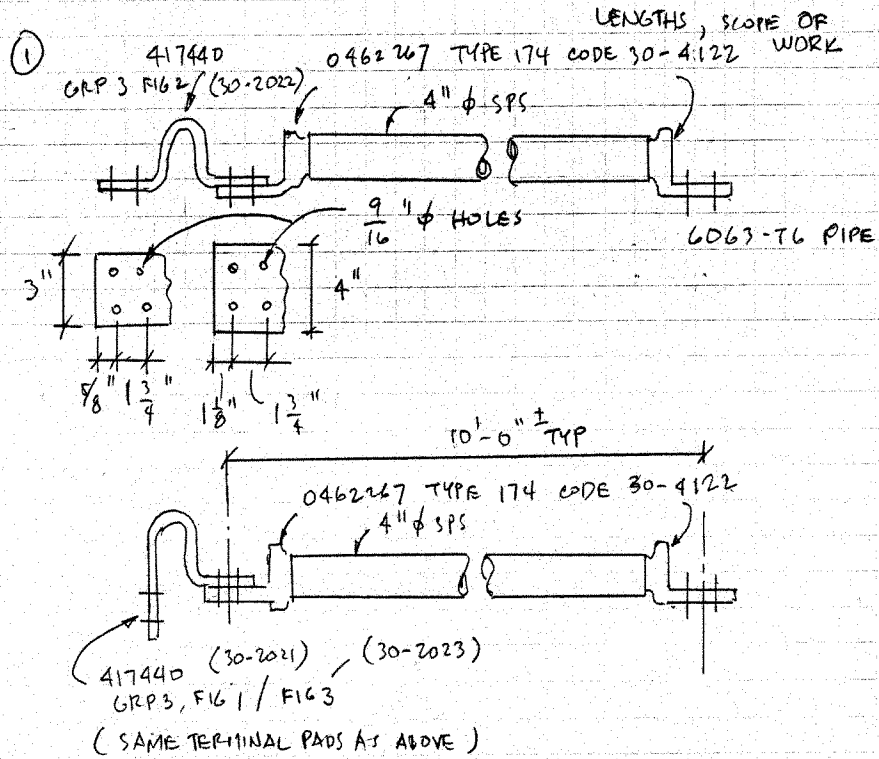 LENGTHS, SCOPE OF WORK
①
417440
GRP 3 FIG 2 (30-2022)
0462267 TYPE 174 CODE 30-4122
4" ϕ SPS
9/16" ϕ HOLES
6063-T6 PIPE
3"
4"
5/8" 1 3/4"
1 1/8" 1 3/4"
10'-0" ± TYP
0462267 TYPE 174 CODE 30-4122
4" ϕ SPS
417440 (30-2021) (30-2023)
GRP 3, FIG 1 / FIG 3
(SAME TERMINAL PADS AS ABOVE)